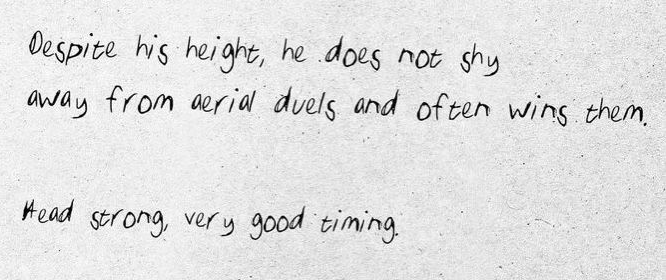 Despite his height, he does not shy
away from aerial duels and often wins them.
Head strong, very good timing.